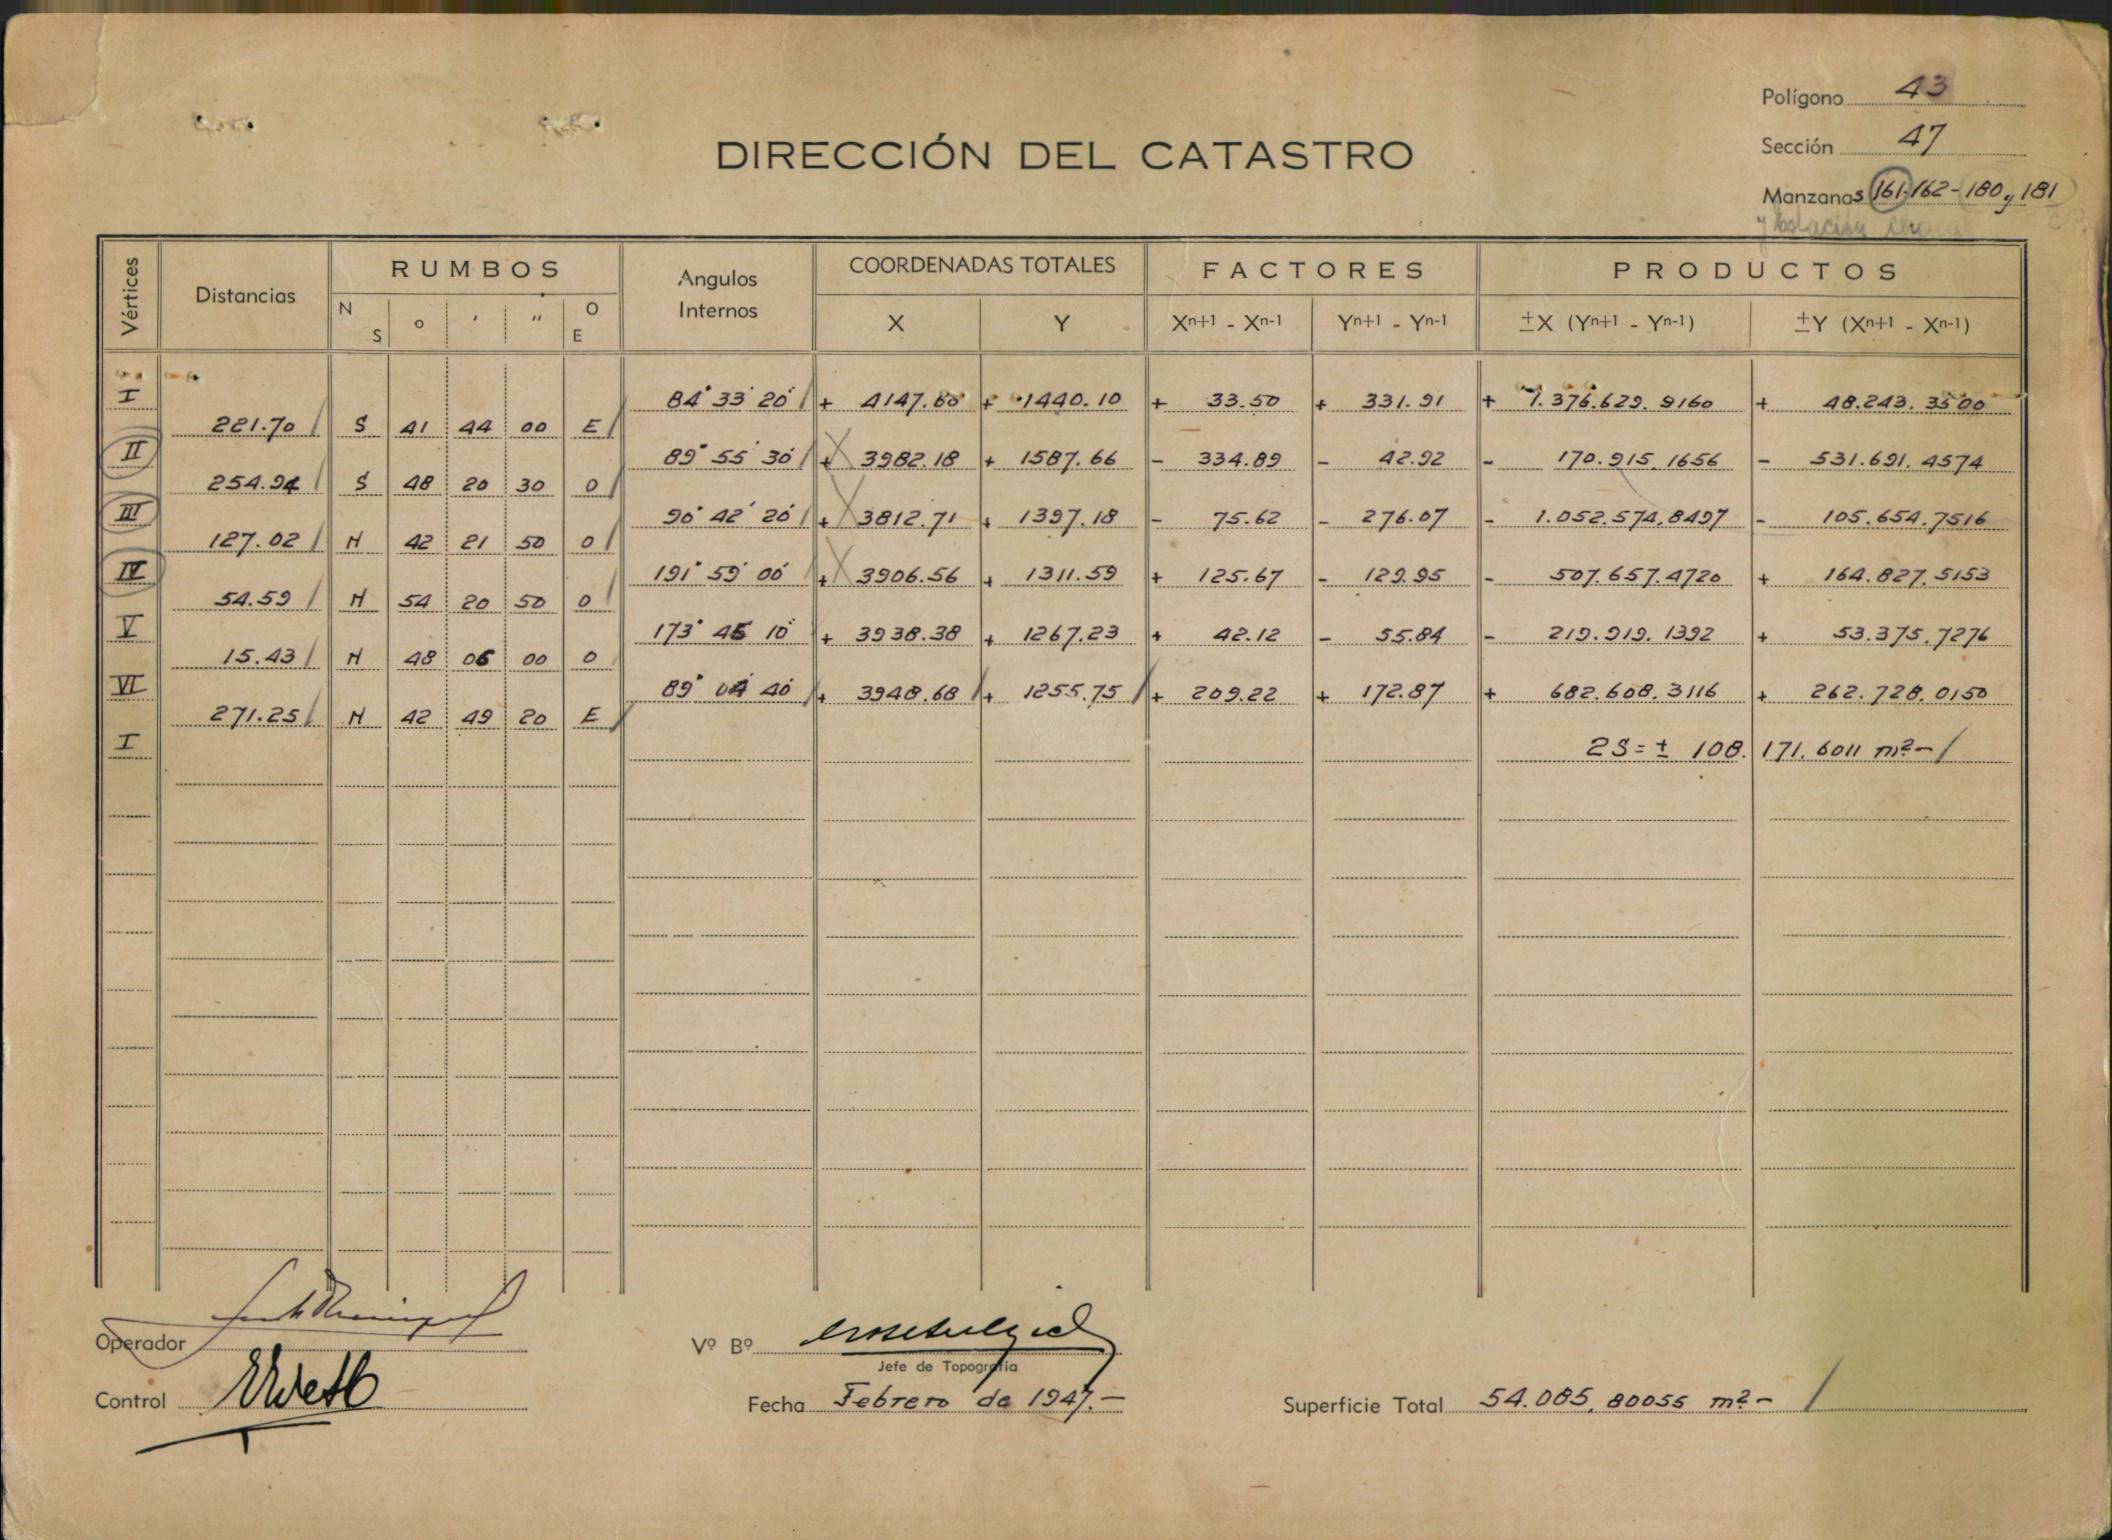 Polígono 43
DIRECCIÓN DEL CATASTRO
Sección 47
Manzanas 161-162-180 y 181
y
Vértices Distancias RUMBOS Angulos Internos COORDENADAS TOTALES FACTORES PRODUCTOS
N S ° ' " O E X Y Xn+1 - Xn-1 Yn+1 - Yn-1 ±X (Yn+1 - Yn-1) ±Y (Xn+1 - Xn-1)
I 84° 33' 20" + 4147.60 + 1440.10 + 33.50 + 331.91 + 1.376.629.9160 + 48.243.3500
221.70 S 41 44 00 E
II 89° 55' 30" + 3982.18 + 1587.66 - 334.89 - 42.92 - 170.915.1656 - 531.691.4574
254.94 S 48 20 30 O
III 90° 42' 20" + 3812.71 + 1397.18 - 75.62 - 276.07 - 1.052.574,8497 - 105.654.7516
127.02 N 42 21 50 O
IV 191° 59' 00" + 3906.56 + 1311.59 + 125.67 - 129.95 - 507.657.4720 + 164.827.5153
54.59 N 54 20 50 O
V 173° 45' 10" + 3938.38 + 1267.23 + 42.12 - 55.84 - 219.919.1392 + 53.375.7276
15.43 N 48 06 00 O
VI 89° 04' 40" + 3948.68 + 1255.75 + 209.22 + 172.87 + 682.608.3116 + 262.728.0150
271.25 N 42 49 20 E
I 2S = ± 108.171.6011 m²-
Operador
Vº Bº
Jefe de Topografía
Control
Fecha Febrero de 1947.-
Superficie Total 54.085.80055 m²-